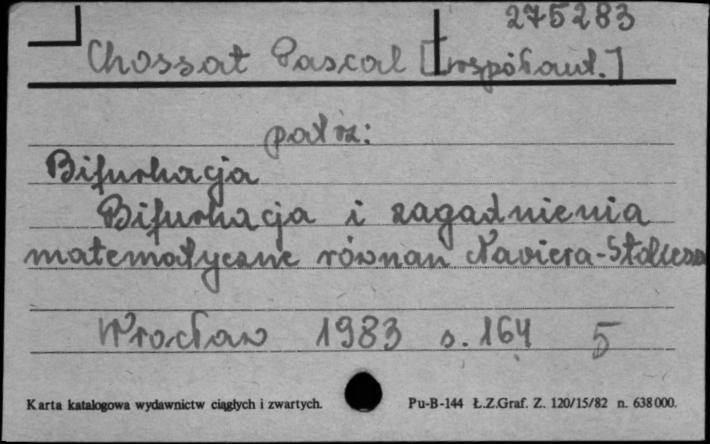 275283
Chossat Pascal [współaut.]
patrz:
Bifurkacja
Bifurkacja i zagadnienia
matematyczne równań Naviera-Stokesa
Wrocław 1983 s. 164 5
Karta katalogowa wydawnictw ciągłych i zwartych. Pu-B-144 Ł.Z.Graf. Z. 120/15/82 n. 638000.